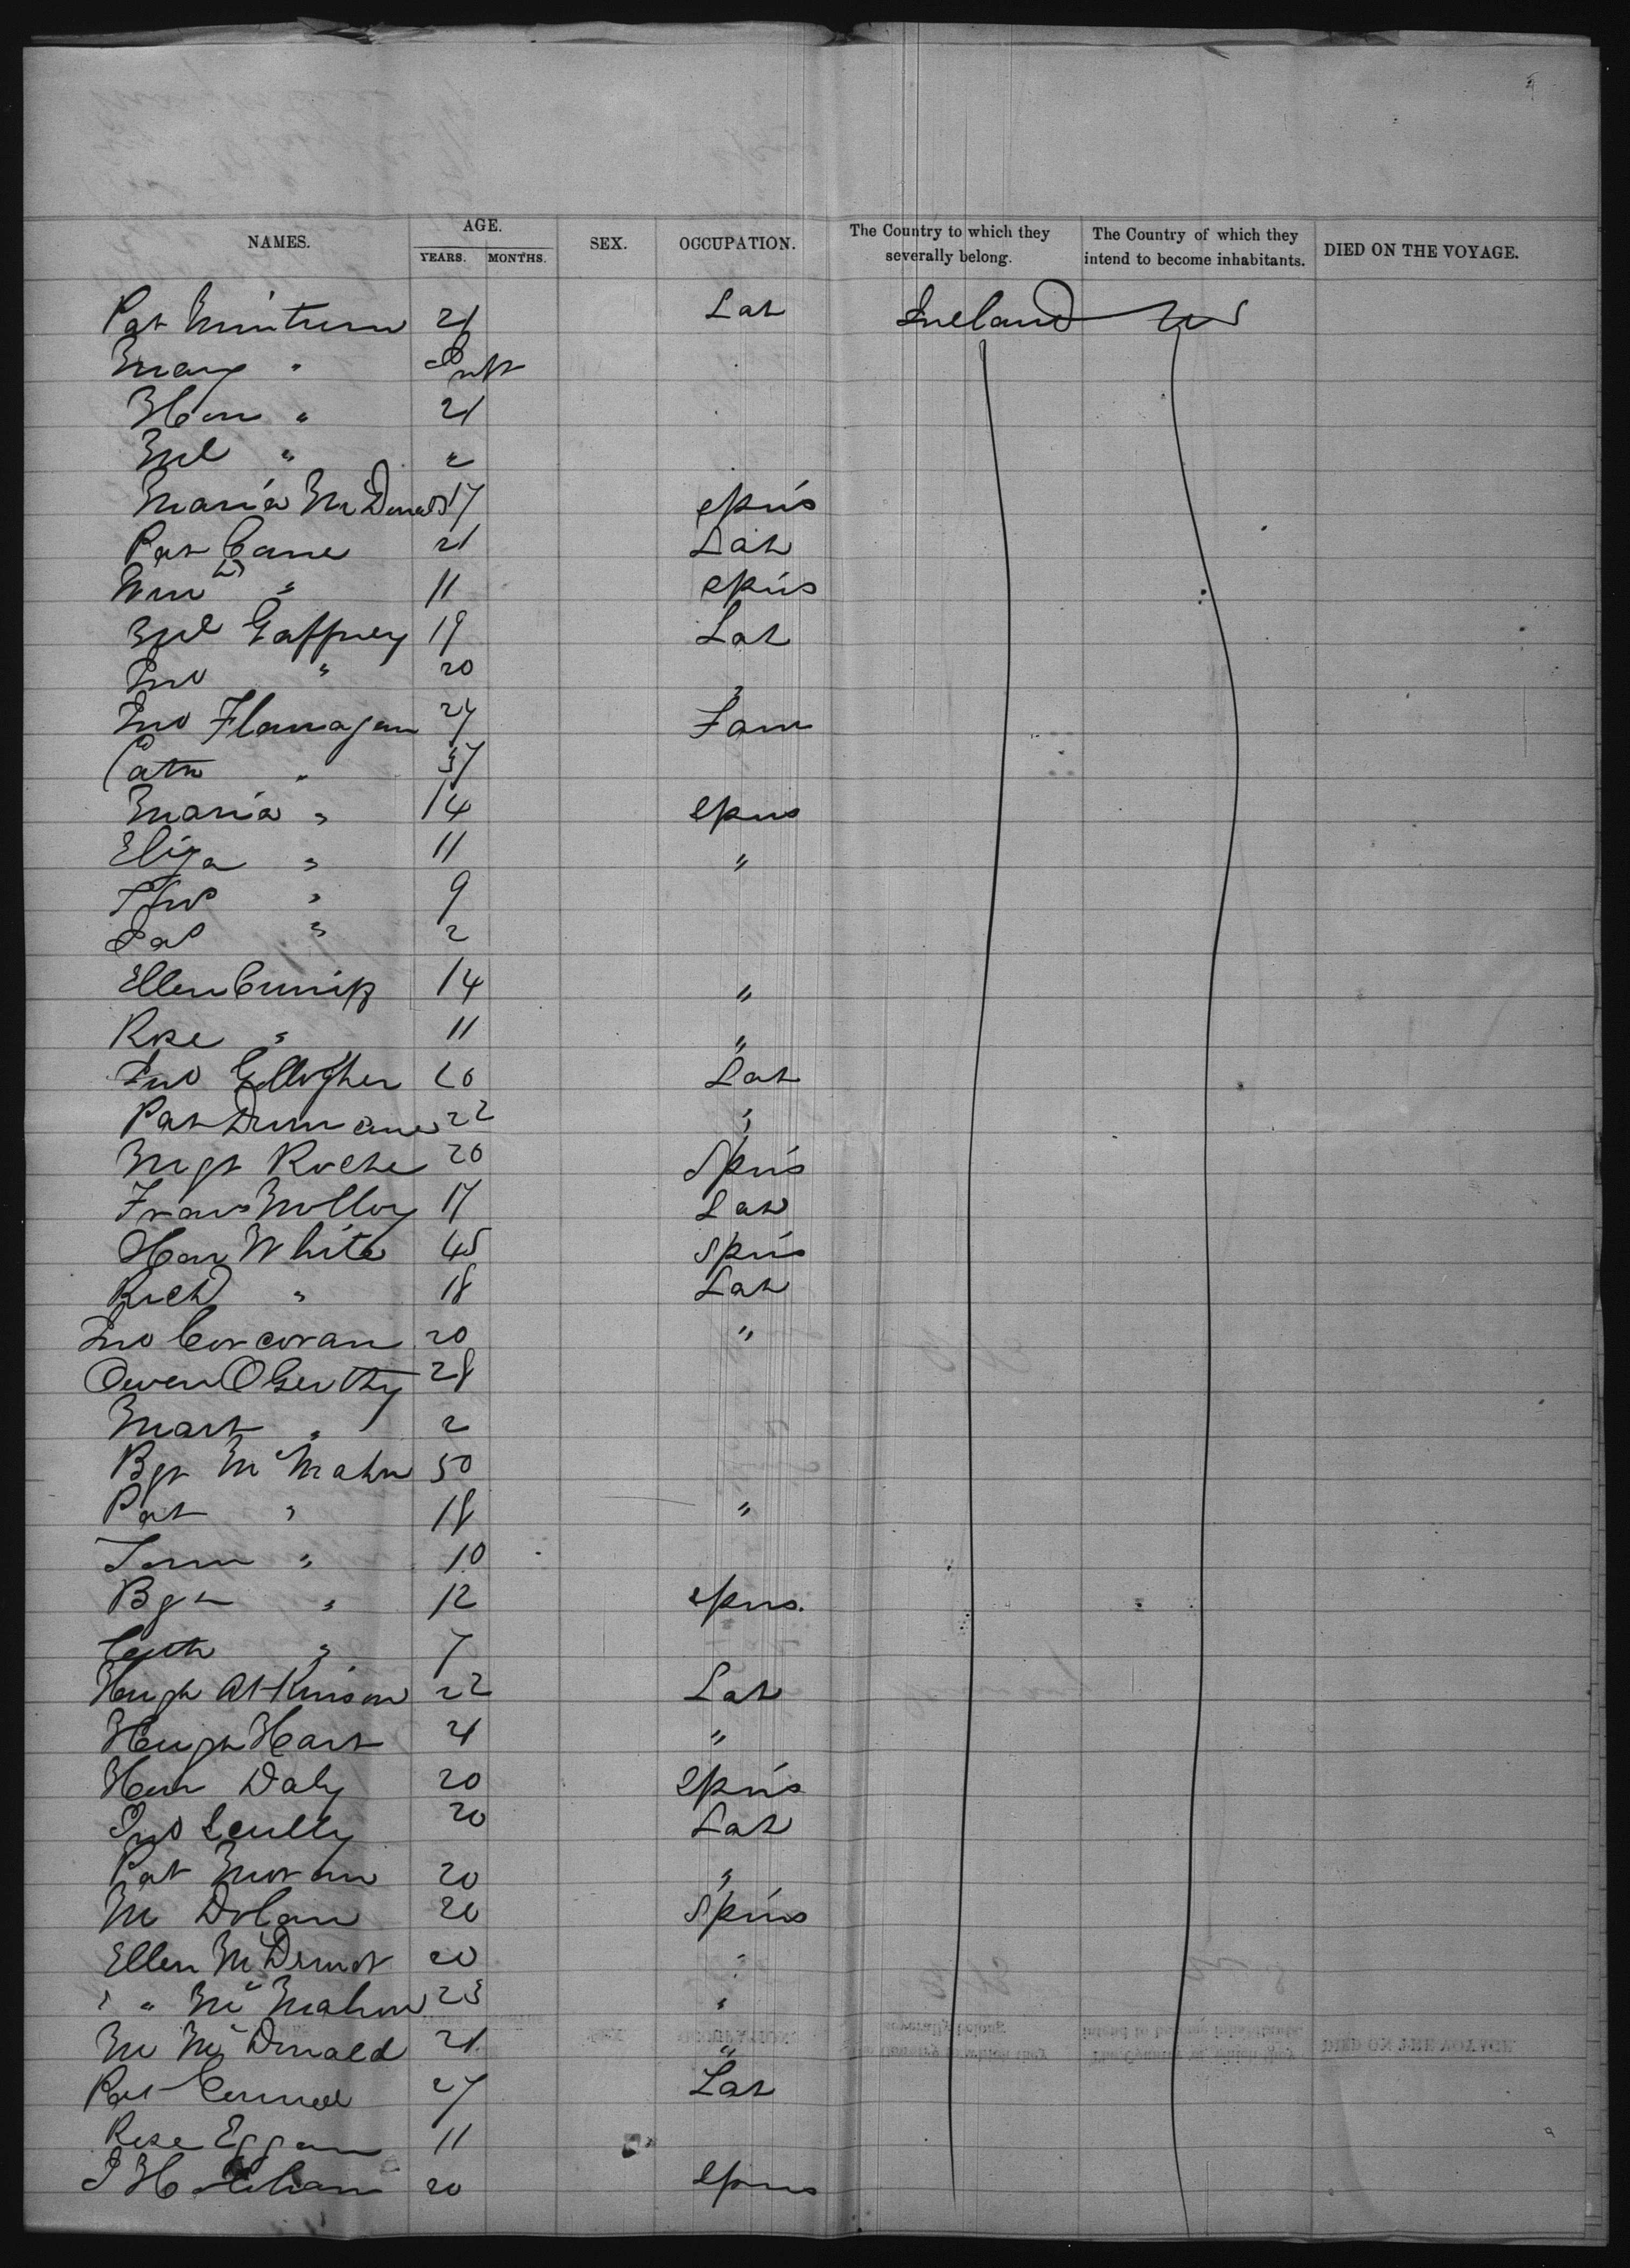 NAMES. AGE. SEX. OCCUPATION. The Country to which they severally belong. The Country of which they intend to become inhabitants. DIED ON THE VOYAGE.
YEARS. MONTHS.
Pat 21 Lab Ireland US
Mary " Inft
Hon " 21
Ml " "
Maria McDonald 17 spins
Pat Cane 21 Lab
Win " 11 spins
Ml Gaffney 19 Lab
Jno " 20 "
Jno Flanagan 27 Farm
Cath " 37
Maria " 14 spins
Eliza " 11 "
Thos " 9
Pat " 2
Ellen 14 "
Rose " 11 "
Jno Gallogher 20 Lab
Pat 22 "
Mgt Roche 20 Spins
Frans Molloy 17 Lab
Hon White 45 Spins
Richd " 18 Lab
Jno Corcoran 20 "
Owen 28
Mart " 2
Bgt McMahon 50
Pat " 18 "
" 10
Bgt " 12 spins
Cath " 7
Hugh Atkinson 22 Lab
Hugh Hart 21 "
Hon Daly 20 spins
Jno Scully 20 Lab
Pat Moran 20 "
M Dolan 20 Spins
Ellen McDrmot 20 "
" McMahon 23 "
M McDonald 21 "
Pat 27 Lab
Rose Eggan 11
20 spins